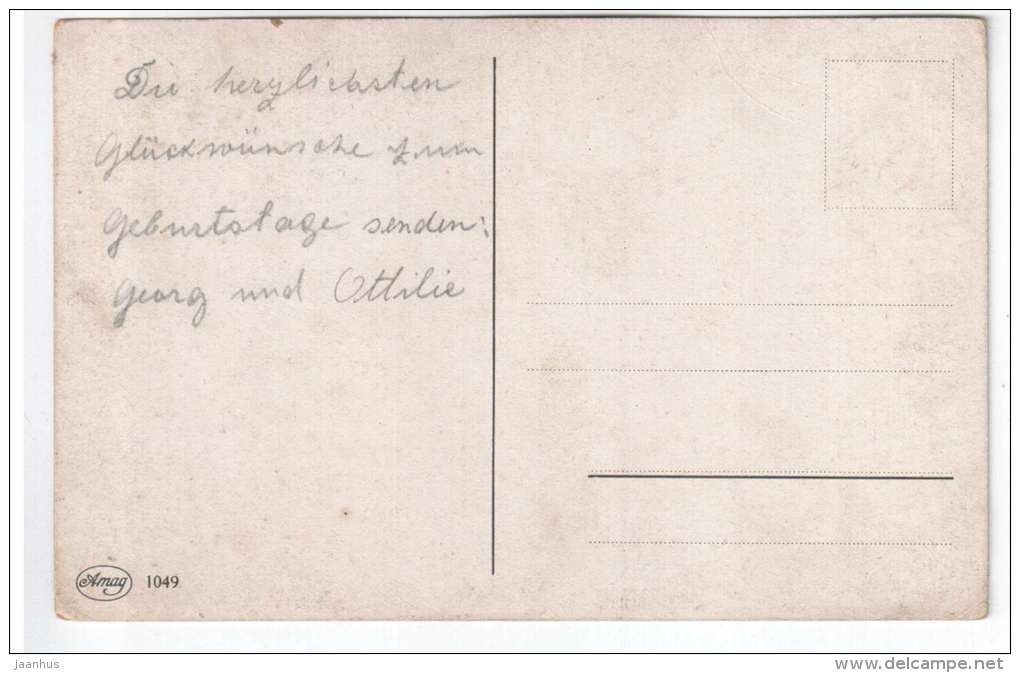 Die herzlichsten
Glückwünsche zum
Geburtstage senden:
Georg und Ottilie
Amag 1049
Jaanhus
www.delcampe.net